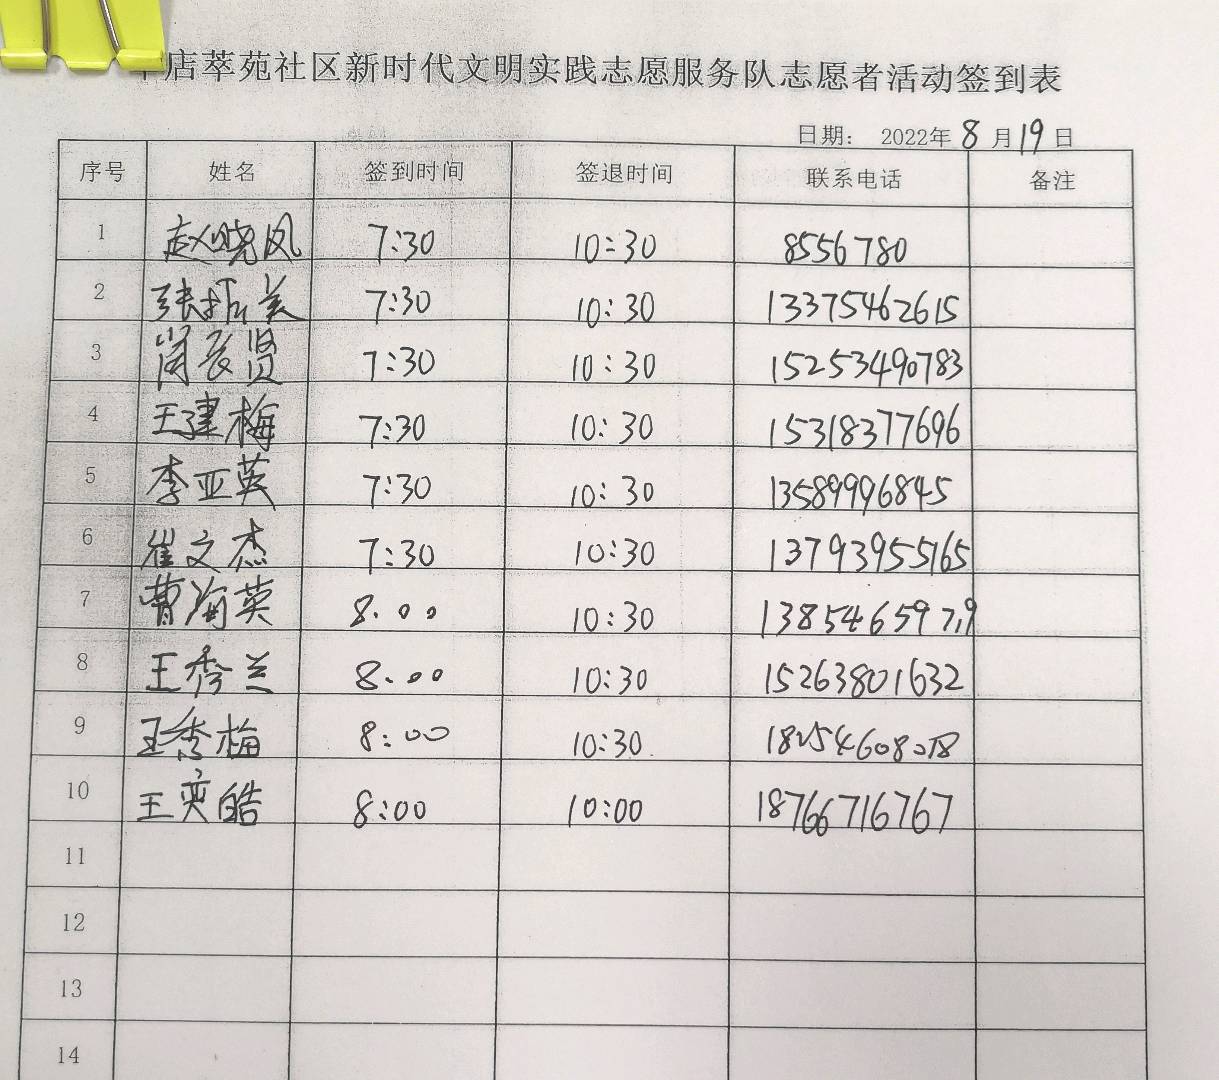 店萃苑社区新时代文明实践志愿服务队志愿者活动签到表
日期： 2022年 8 月 19 日
序号 姓名 签到时间 签退时间 联系电话 备注
1 赵晓凤 7:30 10:30 8556780
2 张振美 7:30 10:30 13375462615
3 贤 7:30 10:30 15253490783
4 王建梅 7:30 10:30 15318377696
5 李亚英 7:30 10:30 13589996845
6 崔文杰 7:30 10:30 13793955165
7 曹海英 8:00 10:30 13854659719
8 王秀兰 8:00 10:30 15263801632
9 王秀梅 8:00 10:30 18254608018
10 王奕皓 8:00 10:00 18766716767
11
12
13
14